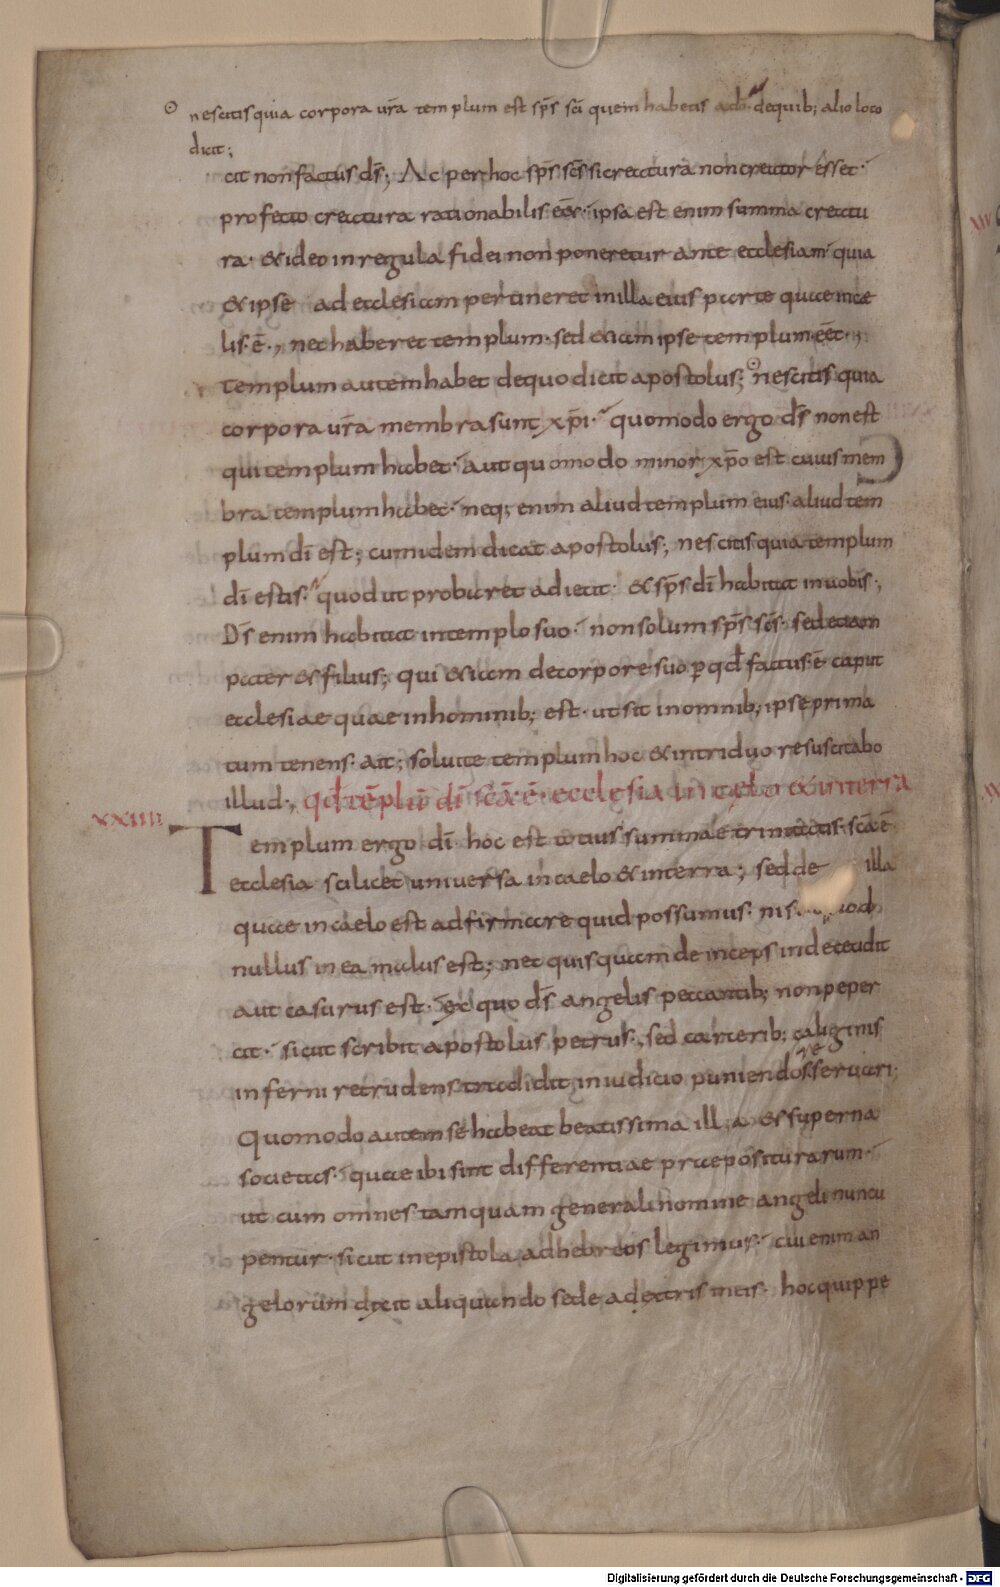 nescitis quia corpora ur̄a templum est sp̄s sc̄i quem habetis a dō. dequib; alio loco
dicit;
cit non factus d̄s; Ac per hoc sp̄s sc̄s si creatura non creator esset·
profecto creatura rationabilis eēt· ipsa est enim summa creatu
ra· & ideo in regula fidei non poneretur ante ecclesiam· quia
& ipse ad ecclesiam pertineret in illa eius parte quae in cae
lis ē·, nec haberet templum· sed etiam ipse templum eēt·,
templum autem habet de quo dicit apostolus; nescitis quia
corpora ur̄a membra sunt xp̄i· quomodo ergo d̄s non est
qui templum habet· aut quomodo minor xp̄o est cuius mem
bra templum habet· neq; enim aliud templum eius· aliud tem
plum dī est; cum idem dicat apostolus; nescitis quia templum
dī estis· quod ut probaret adiecit· & sp̄s dī habitat in uobis·,
D̄s enim habitat in templo suo· non solum sp̄s sc̄s· sed etiam
pater & filius; qui etiam de corpore suo p qd̄ factus ē caput
ecclesiae quae in hominib; est· ut sit in omnib; ipse prima
tum tenens· ait; soluite templum hoc & in triduo resuscitabo
illud·, qd̄ tēplū dī sc̄a ē· ecclesia in celo & in terra
xxiiii
Templum ergo dī· hoc est totius summae trinitatis· sc̄a ē·
ecclesia scilicet uniuersa in caelo & in terra; sed de illa
quae in caelo est adfirmare quid possumus· nis quod
nullus in ea malus est; nec quisquam deinceps inde cecidit
aut casurus est· ex quo d̄s angelis peccantib; non peper
cit· sicut scribit apostolus petrus·, sed carcerib; caliginis
inferni retrudens tradidit in iudicio puniendos seruari·
re
Quomodo autem se habeat beatissima illa & superna
societas· quae ibi sint differentiae praepositurarum·
ut cum omnes tamquam generali nomine angeli nuncu
pentur· sicut in epistola ad hebreos legimus· cui enim an
gelorum dixit aliquando sede ad extris meis· hoc quippe
Digitalisierung gefördert durch die Deutsche Forschungsgemeinschaft - DFG